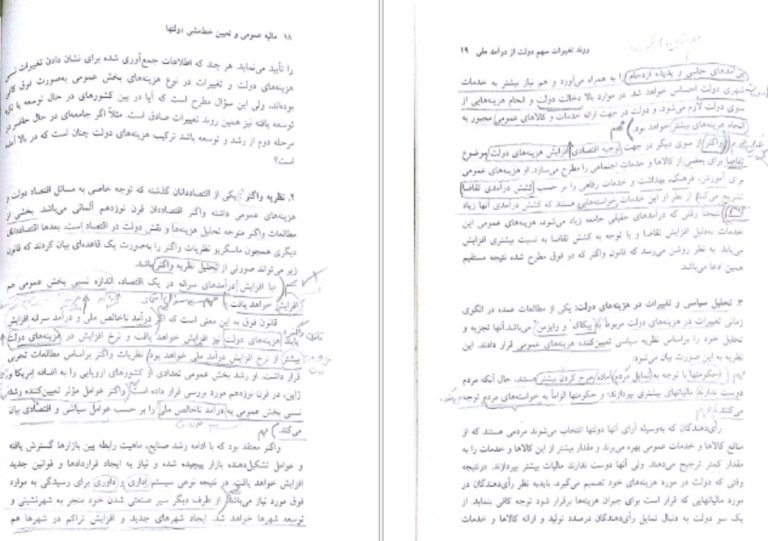 ۱۸ مالیه عمومی و تعیین خط‌مشی دولتها
را تأیید می‌نماید. هر چند که اطلاعات جمع‌آوری شده برای نشان دادن تغییرات نسبی
هزینه‌های دولت و تغییرات در نوع هزینه‌های بخش عمومی به‌صورت فوق کافی
بوده‌اند، ولی این سؤال مطرح است که آیا در بین کشورهای در حال توسعه یا تازه
توسعه یافته نیز همین روند تغییرات صادق است. مثلاً اگر جامعه‌ای در حال حاضر در
مرحله دوم از رشد و توسعه باشد ترکیب هزینه‌های دولت چنان است که در بالا آمده
است؟
۲. نظریه واگنر: یکی از اقتصاددانان گذشته که توجه خاصی به مسائل اقتصاد دولت و
هزینه‌های عمومی داشته واگنر اقتصاددان قرن نوزدهم آلمانی می‌باشد. بخشی از
مطالعات واگنر متوجه تحلیل هزینه‌ها و نقش دولت در اقتصاد است. بعدها اقتصاددانان
دیگری همچون ماسگریو نظریات واگنر را به‌صورت یک قاعده‌ای بیان کردند که قانون
زیر می‌تواند صورتی از تحلیل نظریه واگنر باشد.
«با افزایش درآمدهای سرانه در یک اقتصاد، اندازه نسبی بخش عمومی هم
افزایش خواهد یافت.»
قانون فوق به این معنی است که اگر درآمد ناخالص ملی و درآمد سرانه افزایش
یابد هزینه‌های دولت نیز افزایش خواهد یافت و نرخ افزایش در هزینه‌های دولت
بیشتر از نرخ افزایش درآمد ملی خواهد بود. نظریات واگنر براساس مطالعات تجربی
قرار داشت. از رشد بخش عمومی تعدادی از کشورهای اروپایی را به اضافه آمریکا و
ژاپن، در قرن نوزدهم مورد بررسی قرار داده است. واگنر عوامل مؤثر تعیین‌کننده رشد
نسبی بخش عمومی به درآمد ناخالص ملی را بر حسب عوامل سیاسی و اقتصادی بیان
می‌کند. مهم
واگنر معتقد بود که با ادامه رشد صنایع، ماهیت رابطه بین بازارها گسترش یافته
و عوامل تشکیل‌دهنده بازار پیچیده شده و نیاز به ایجاد قراردادها و قوانین جدید
افزایش خواهد یافت. در نتیجه نوعی سیستم اداری و داوری برای رسیدگی به موارد
فوق مورد نیاز می‌باشد. از طرف دیگر سیر صنعتی شدن خود منجر به شهرنشینی و
توسعه شهرها خواهد شد. ایجاد شهرهای جدید و افزایش تراکم در شهرها هم
روند تغییرات سهم دولت از درآمد ملی ۱۹
پی‌آمدهای جانبی و پدیده ازدحام را به همراه می‌آورد و هم نیاز بیشتر به خدمات
شهری دولت احساس خواهد شد. در موارد بالا دخالت دولت و انجام هزینه‌هایی از
سوی دولت لازم می‌شود، و دولت در جهت ارائه خدمات و کالاهای عمومی مجبور به
انجام هزینه‌های بیشتر خواهد بود. مهم
واگنر از سوی دیگر در جهت توجیه اقتصادی افزایش هزینه‌های دولت موضوع
تقاضا برای بعضی از کالاها و خدمات اجتماعی را مطرح می‌سازد. او هزینه‌های عمومی
برای آموزش، فرهنگ، بهداشت و خدمات رفاهی را بر حسب کشش درآمدی تقاضا
تشریح می‌کند. از نظر او این خدمات خواسته‌هایی هستند که کشش درآمدی آنها زیاد
است. نتیجتاً وقتی که درآمدهای حقیقی جامعه زیاد می‌شود، هزینه‌های عمومی این
خدمات به‌دلیل افزایش تقاضا و با توجه به کشش تقاضا به نسبت بیشتری افزایش
می‌یابد. به نظر روشن می‌رسد که قانون واگنر که در فوق مطرح شده نتیجه مستقیم
همین ادعا می‌باشد.
۳. تحلیل سیاسی و تغییرات در هزینه‌های دولت: یکی از مطالعات عمده در الگوی
زمانی تغییرات در هزینه‌های دولت مربوط به پیکاک و وایزمن می‌باشد. آنها تجزیه و
تحلیل خود را براساس نظریه سیاسی تعیین‌کننده هزینه‌های عمومی قرار دادند. این
نظریه به این صورت بیان می‌شود:
«حکومتها با توجه به تمایل مردم آماده خرج کردن بیشتر هستند. حال آنکه مردم
دوست ندارند مالیاتهای بیشتری بپردازند؛ و حکومتها الزاماً به خواسته‌های مردم توجه
می‌کنند.» مهم
رأی‌دهندگان که به‌وسیله آرای آنها دولتها انتخاب می‌شوند مردمی هستند که از
منافع کالاها و خدمات عمومی بهره می‌برند و مقدار بیشتر از این کالاها و خدمات را به
مقدار کمتر ترجیح می‌دهند. ولی آنها دوست ندارند مالیات بیشتر بپردازند. درنتیجه
وقتی که دولت در مورد هزینه‌های خود تصمیم می‌گیرد، باید به نظر رأی‌دهندگان در
مورد مالیاتهایی که قرار است برای جبران هزینه‌ها برقرار شود توجه کافی بنماید. از
یک سو دولت به دنبال تمایل رأی‌دهندگان درصدد تولید و ارائه کالاها و خدمات